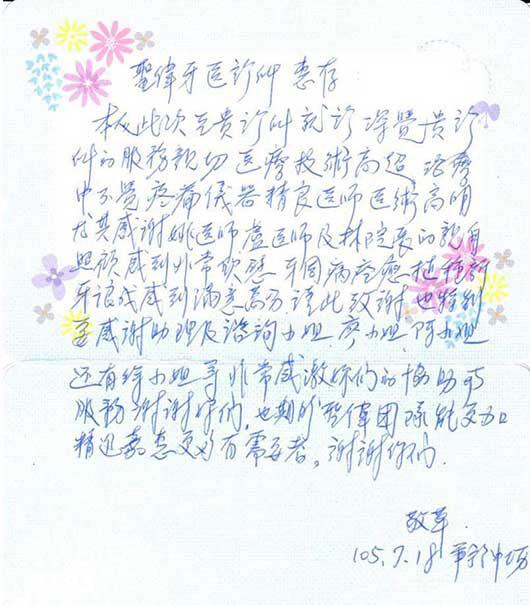 聖偉牙医診所 惠存
本人此次至貴診所就診 深覺貴診
所的服務親切 医療技術高超 治療
中不覺疼痛儀器精良医师医術高明
尤其感謝姚医师盧医师及林院長的親自
照顧感到非常欣慰 牙周病痊癒植種新
牙讓我感到滿意万謹此致謝 也特別
要感謝助理及諮詢小姐 廖小姐 阿小姐
还有徐小姐等非常感激妳們的協助与
服務 謝謝妳們，也期盼聖偉團隊能更加
精進嘉惠更多有需要者，謝謝你們
敬筆
105.7.18